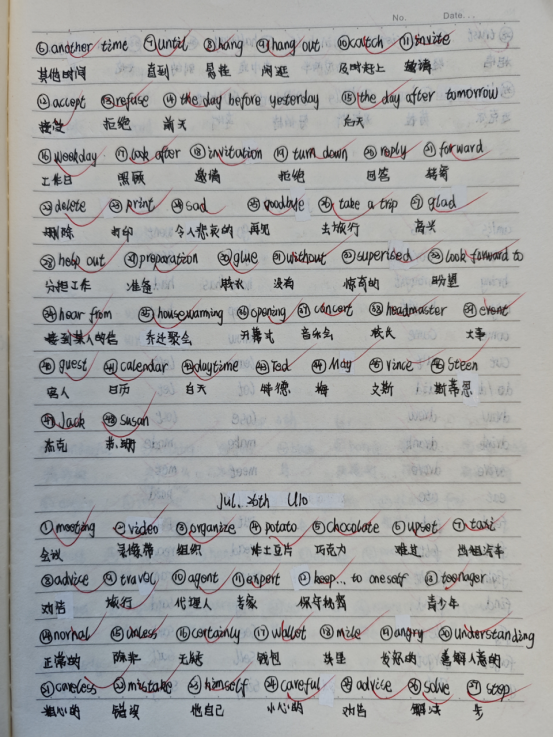 No. Date...
⑥another time ⑦until ⑧hang ⑨hang out ⑩catch ⑪invite
其他时间 直到 悬挂 闲逛 及时赶上 邀请
⑫accept ⑬refuse ⑭the day before yesterday ⑮the day after tomorrow
接受 拒绝 前天 后天
⑯weekday ⑰look after ⑱invitation ⑲turn down ⑳reply ㉑forward
工作日 照顾 邀请 拒绝 回答 转寄
㉒delete ㉓print ㉔sad ㉕goodbye ㉖take a trip ㉗glad
删除 打印 令人悲哀的 再见 去旅行 高兴
㉘help out ㉙preparation ㉚glue ㉛without ㉜superised ㉝look forward to
分担工作 准备 胶水 没有 惊奇的 盼望
㉞hear from ㉟housewarming ㊱opening ㊲concert ㊳headmaster ㊴event
接到某人的信 乔迁聚会 开幕式 音乐会 校长 大事
㊵guest ㊶calendar ㊷daytime ㊸Ted ㊹May ㊺vince ㊻Steen
客人 日历 白天 特德 梅 文斯 斯蒂恩
㊼Jack ㊽Susan
杰克 苏珊
Jul. 26th U10
①meeting ②video ③organize ④potato ⑤chocolate ⑥upset ⑦taxi
会议 录像带 组织 炸土豆片 巧克力 难过 出租汽车
⑧advice ⑨travel ⑩agent ⑪expert ⑫keep... to oneself ⑬teenager
劝告 旅行 代理人 专家 保守秘密 青少年
⑭normal ⑮unless ⑯certainly ⑰wallet ⑱mile ⑲angry ⑳understanding
正常的 除非 无疑 钱包 英里 发怒的 善解人意的
㉑careless ㉒mistake ㉓himself ㉔careful ㉕advise ㉖solve ㉗step
粗心的 错误 他自己 小心的 劝告 解决 步